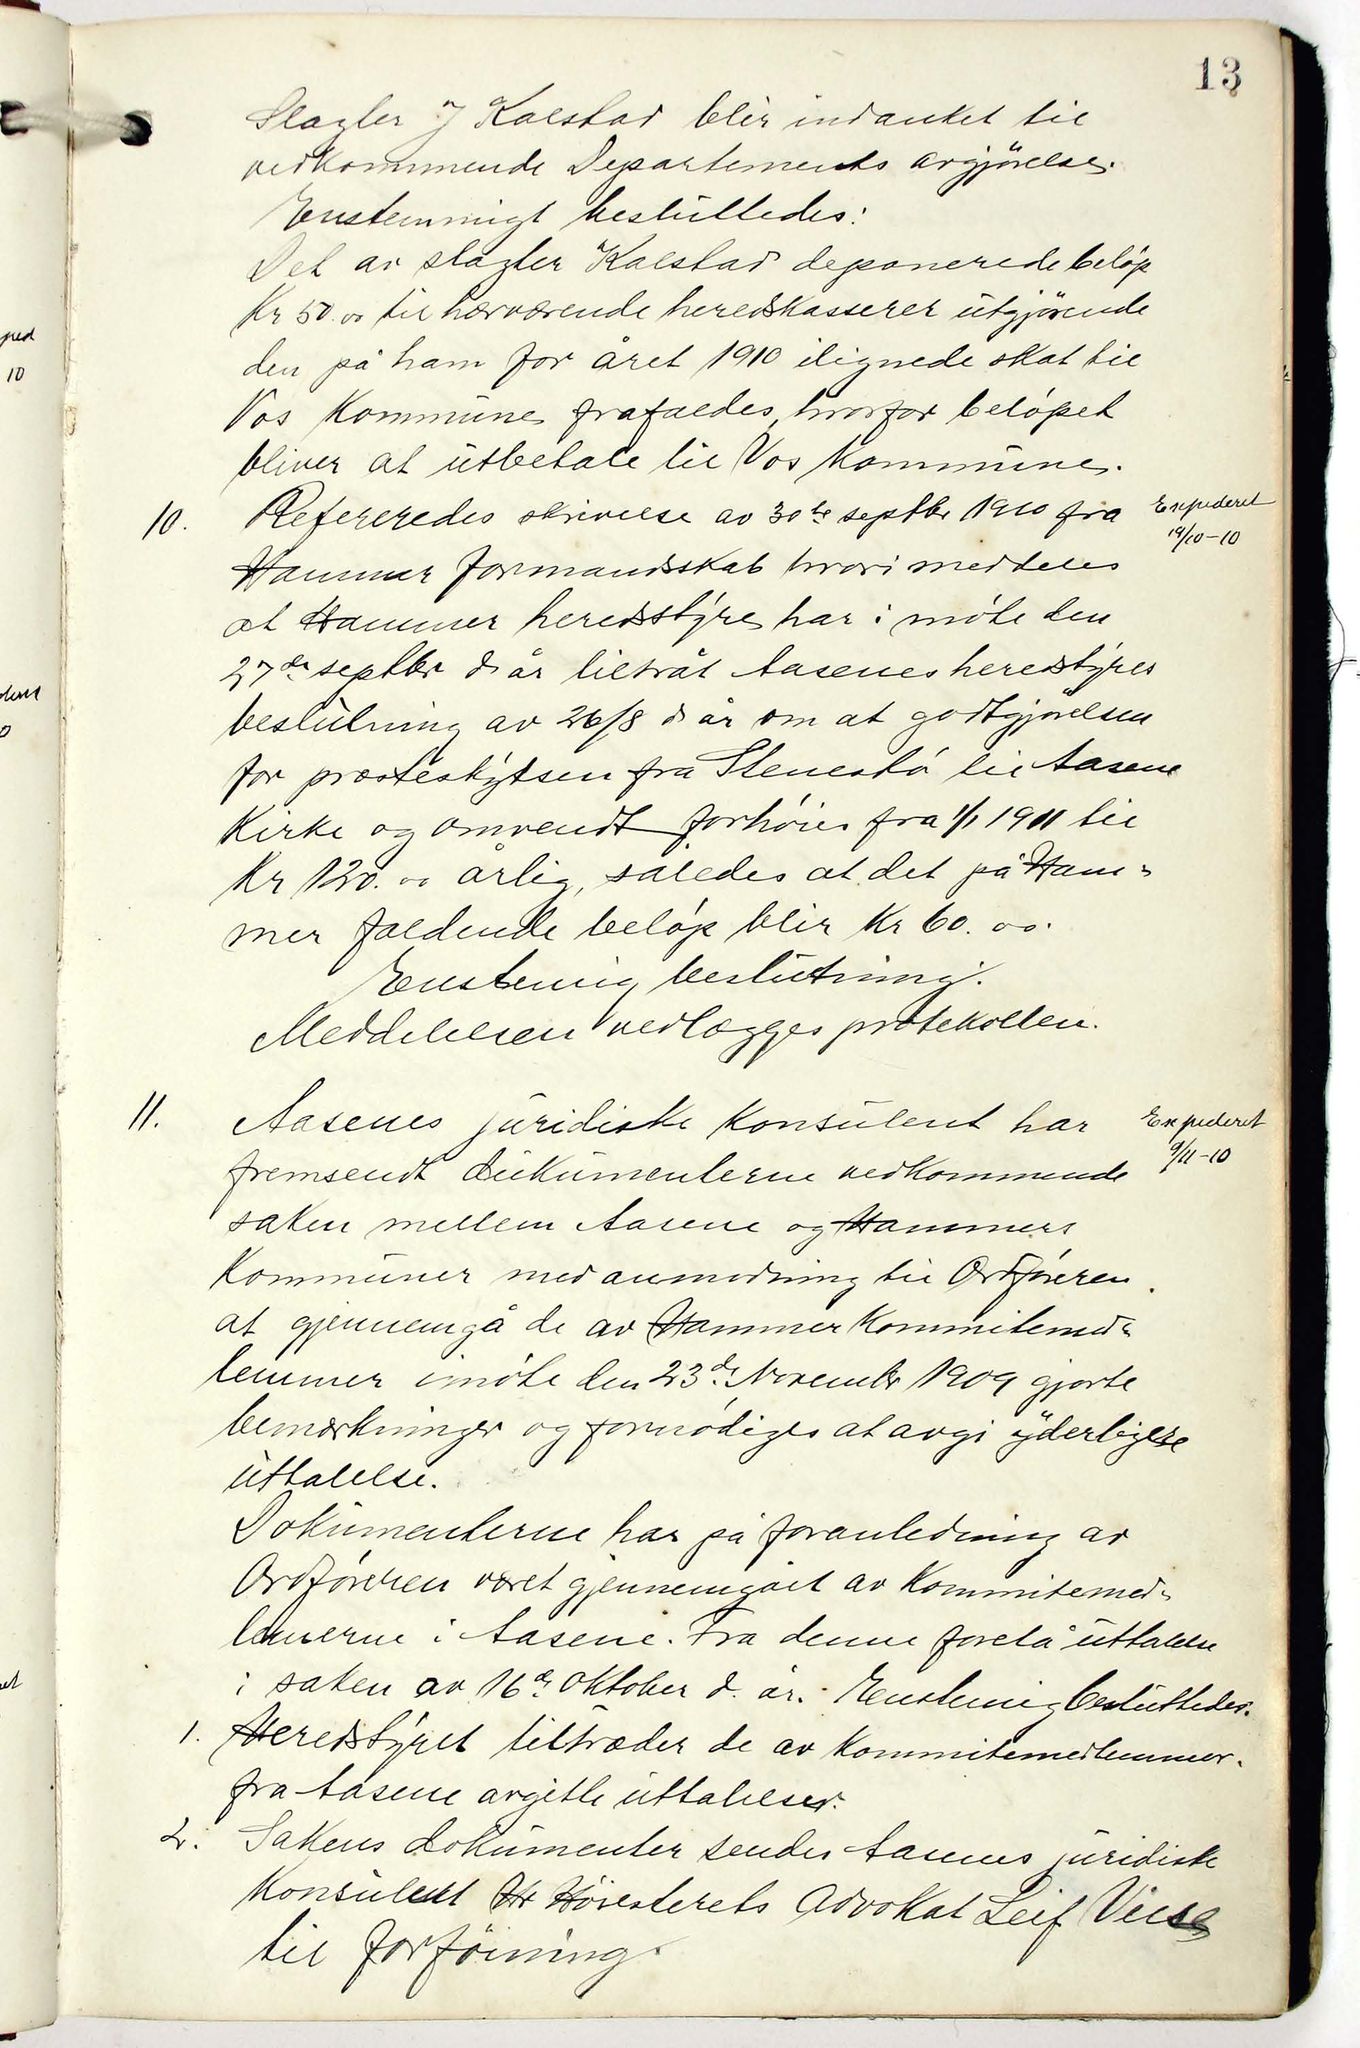 13
Slagter J Kalstad blir indanket til
vedkommende Departements avgjörelse.
Enstemmigt besluttedes:
Det av slagter Kalstad deponerede beløp
Kr 50.00 til hærværende heredskasserer utgjörende
den på ham for året 1910 ilignede skat til
Vos Kommune frafaldes, hvorfor beløpet
bliver at utbetale til Vos Kommune.
10. Refereredes skrivelse av 30te septbr 1910 fra
Expederet
19/10-10
Hammer formandsskab hvori meddeles
at Hammer heredsstyre har i möte den
27de septbr d år tiltråt Aasenes heredstyres
beslutning av 26/8 d år om at godtgjörelsen
for præsteskydsen fra Stenestö til Aasene
Kirke og omvendt forhöies fra 1/1 1911 til
Kr 120.00 årlig, således at det på Ham-
mer faldende belöp blir Kr 60.00.
Enstemig beslutning.
Meddelelsen vedlægges protokollen.
11. Aasenes juridiske Konsulent har
Expederet
9/11-10
fremsendt dukumenterne vedkommende
saken mellem Aasene og Hammers
Kommuner med anmodning til Ordföreren
at gjennemgå de av Hammer Kommitemed-
lemmer i möte den 23de Novembr 1909 gjorte
bemærkninger og formödiges at avgi yderligere
uttalelse.
Dokumenterne har på foranledning av
Ordföreren været gjennemgået av Kommitemed-
lemerne i Aasene. Fra denne forelå uttalelse
i saken av 16de Oktober d. år. Enstemig besluttedes.
1. Heredstyret tiltræder de av Kommitemedlemmer
fra Aasene avgitte uttalelser.
2. Sakens dokumenter sendes Aasenes juridiske
Konsulent Hr Höiesterets Advokat Leif
til forföining.